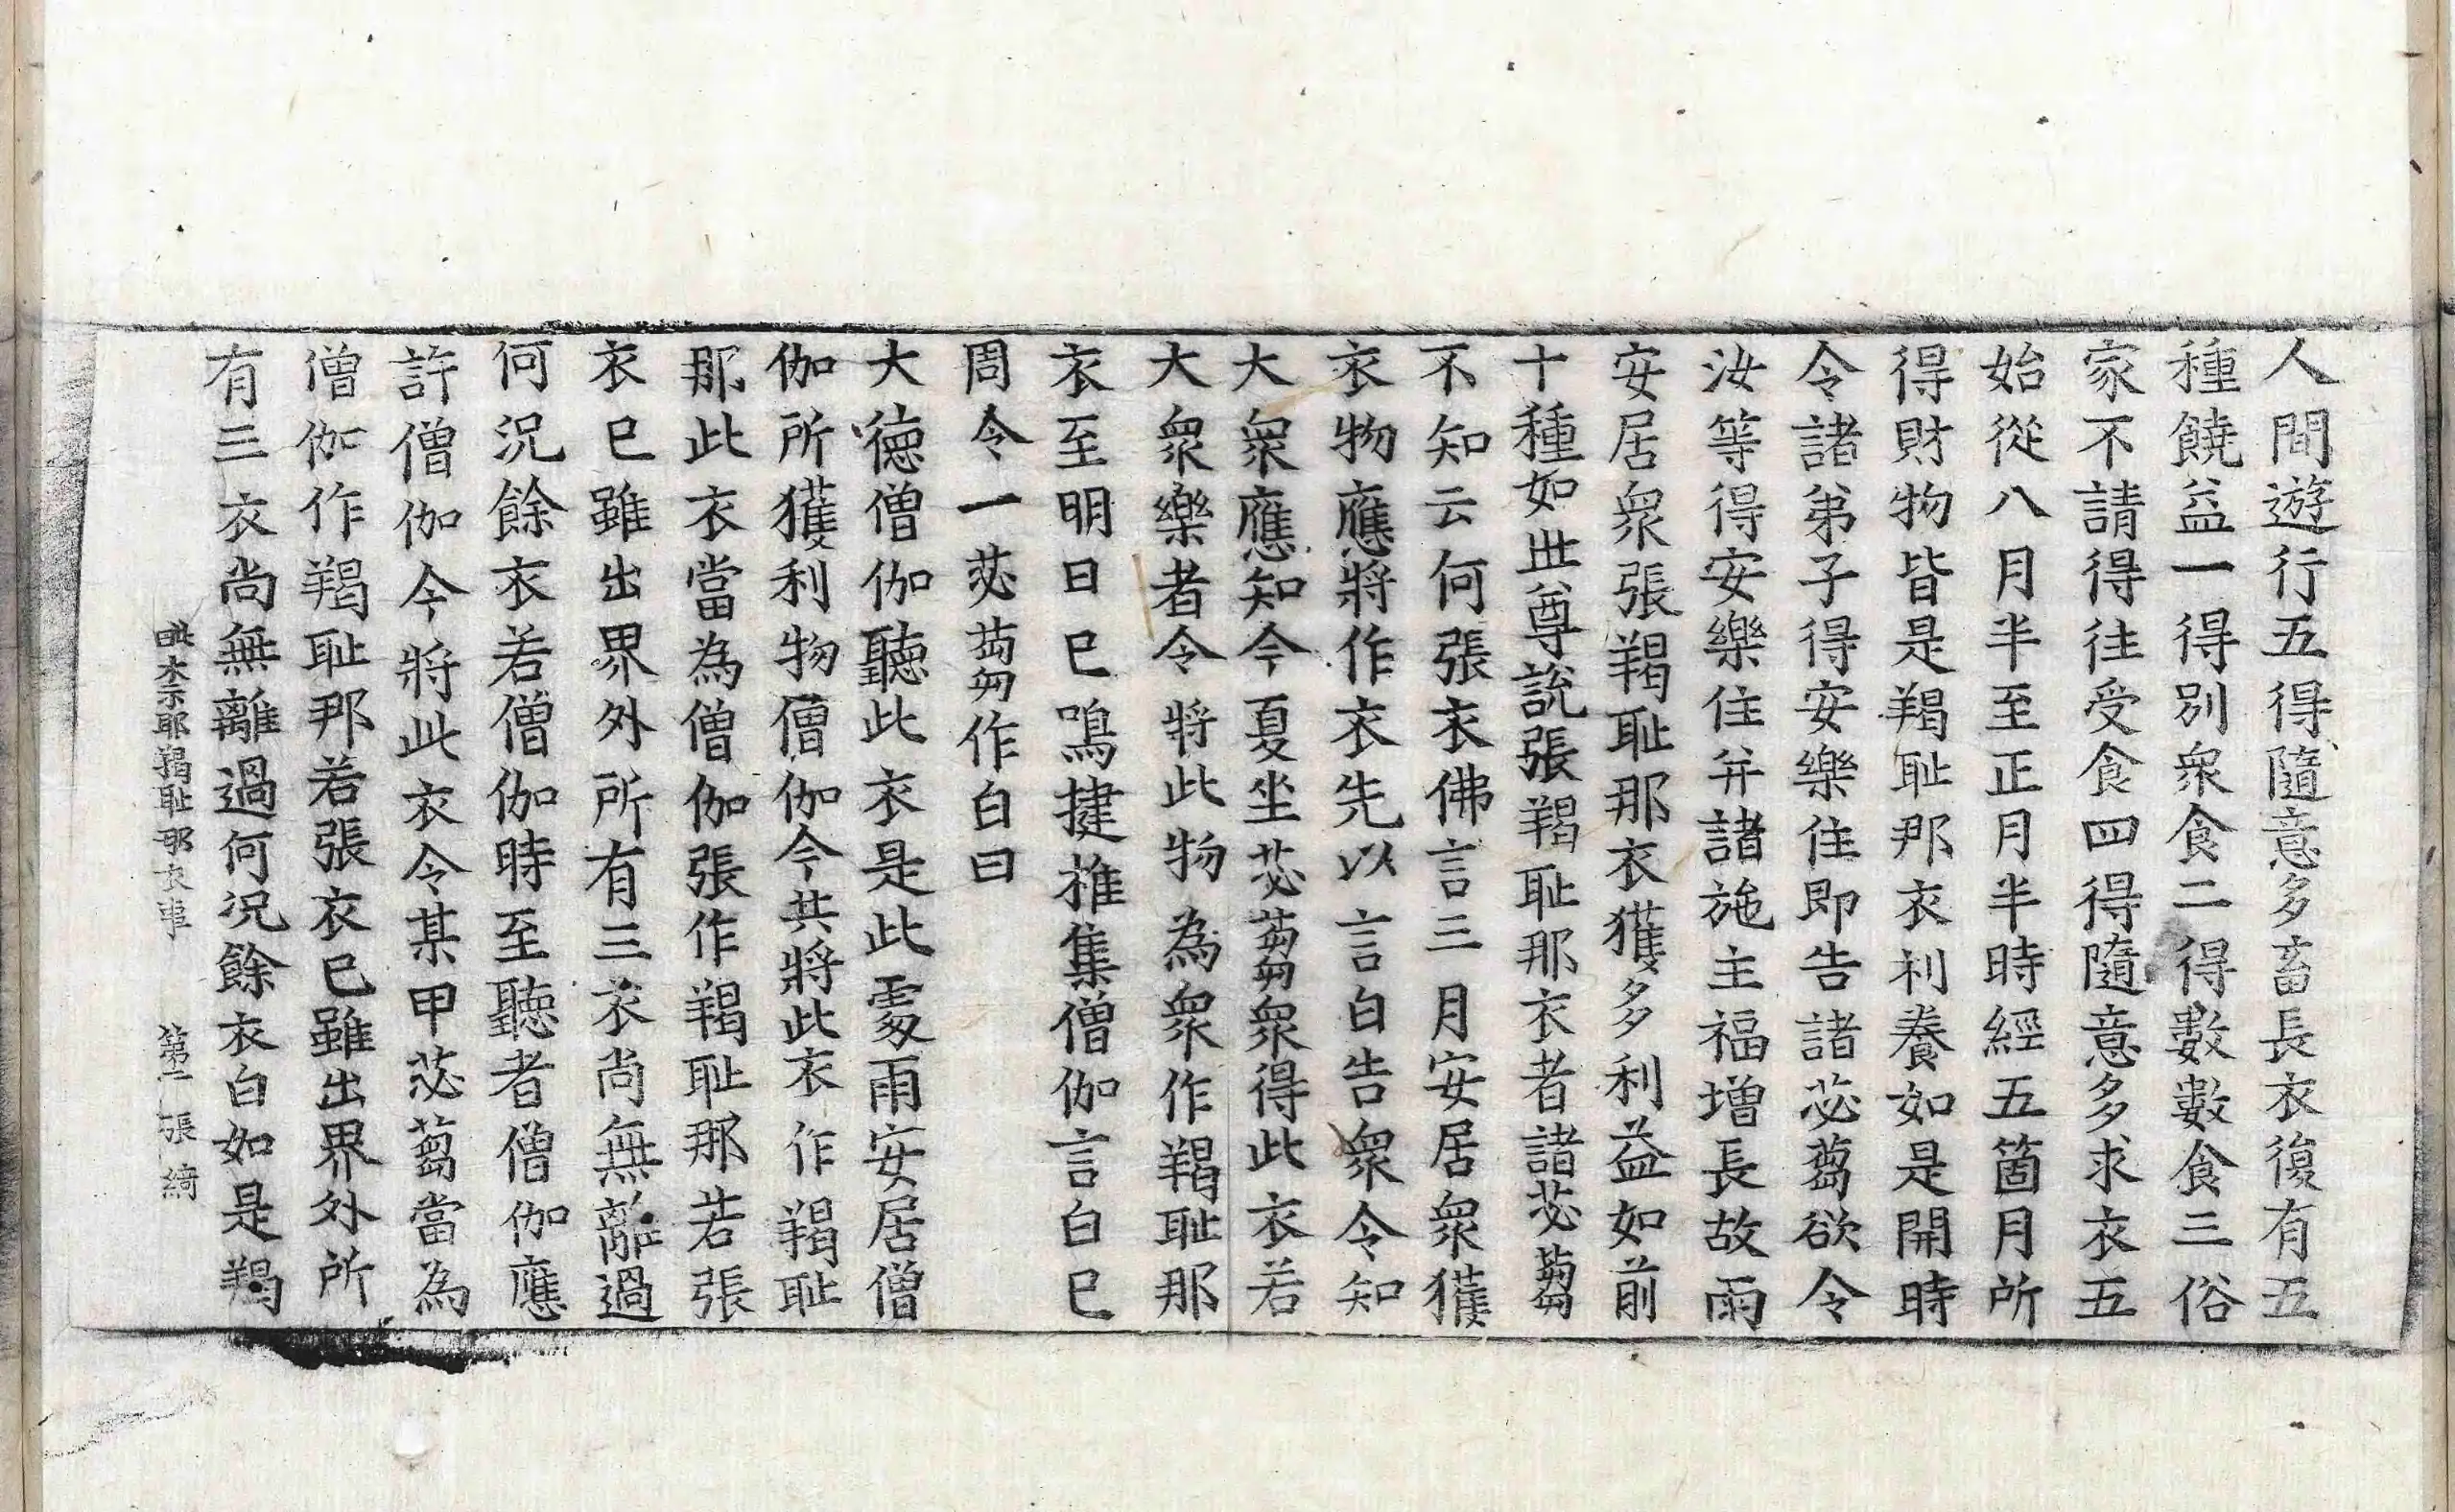 人間遊行五得隨意多畜長衣復有五
種饒益一得別衆食二得數數食三俗
家不請得往受食四得隨意多求衣五
始從八月半至正月半時經五箇月所
得財物皆是羯耻那衣利養如是開時
令諸弟子得安樂住即告諸苾蒭欲令
汝等得安樂住并諸施主福增長故雨
安居衆張羯耻那衣獲多利益如前
十種如世尊說張羯耻那衣者諸苾蒭
不知云何張衣佛言三月安居衆獲
衣物應將作衣先以言白告衆令知
大衆應知今夏坐苾蒭衆得此衣若
大衆樂者令將此物為衆作羯耻那
衣至明日已鳴揵椎集僧伽言白已
周令一苾蒭作白曰
大德僧伽聽此衣是此處雨安居僧
伽所獲利物僧伽今共將此衣作羯耻
那此衣當為僧伽張作羯耻那若張
衣已雖出界外所有三衣尚無離過
何況餘衣若僧伽時至聽者僧伽應
許僧伽今將此衣令某甲苾蒭當為
僧伽作羯耻那若張衣已雖出界外所
有三衣尚無離過何況餘衣白如是羯
耶羯耻那衣事 第二張 綺